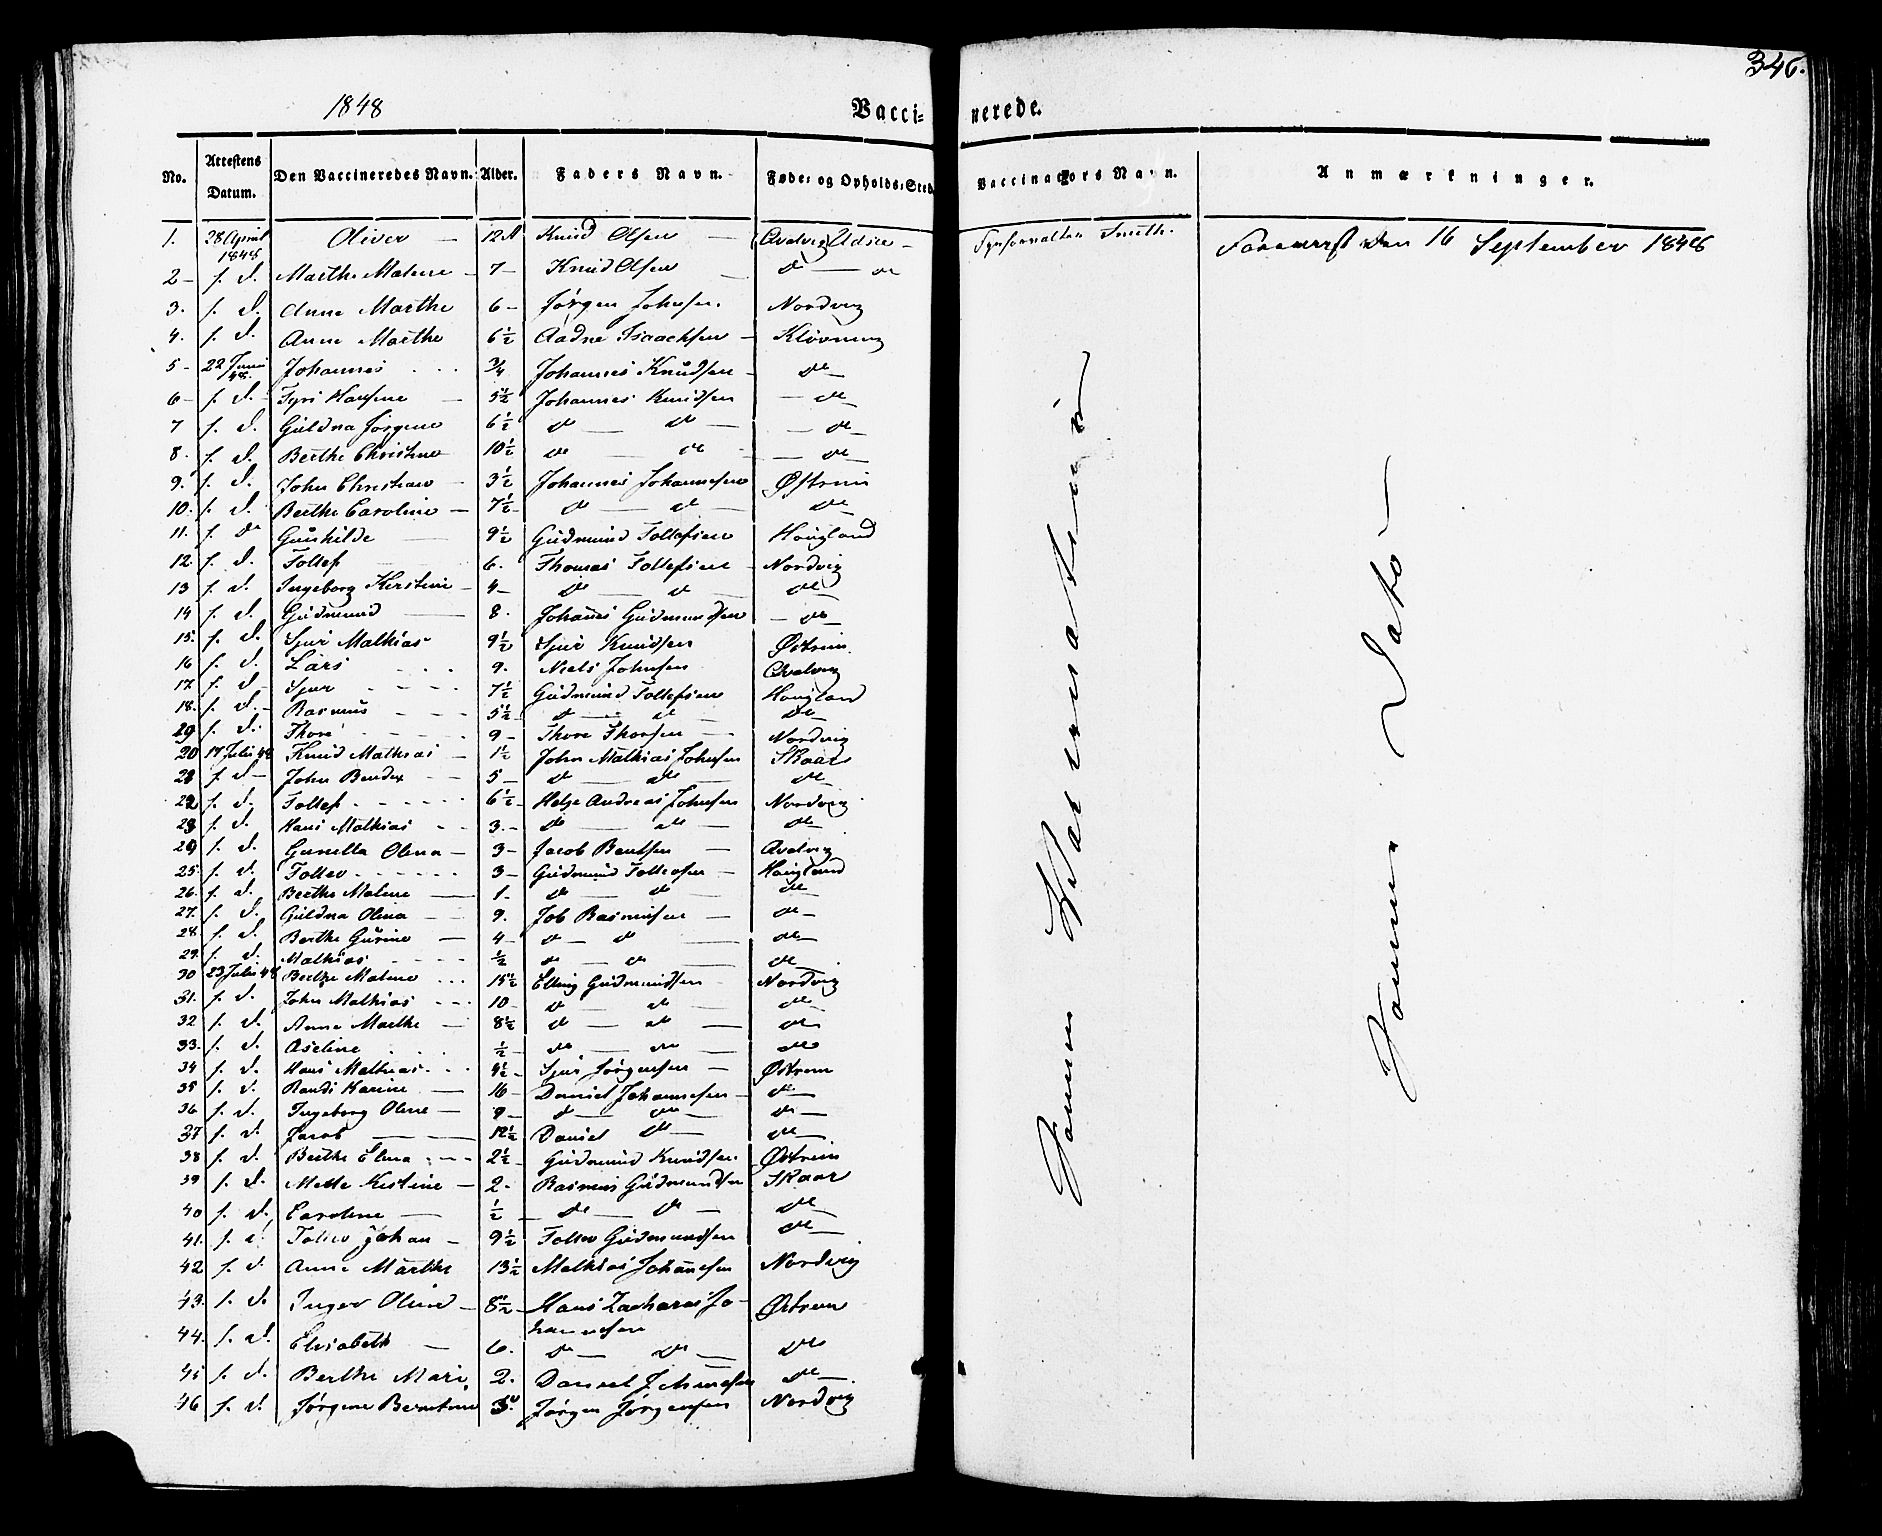 346.
1848
Vacci- nerede.
No. Attestens Datum. Den Vaccineredes Navn. Alder. Faders Navn. Føde- og Opholds-Sted Vaccinateurs Navn. Anmærkninger.
1. 28 April 1848 Oliver — 12 A Knud Olsen — Qvalvig Udsire — Smith. Foreviist den 16 September 1848
2 — s. d. Marthe Malene — 7 — Knud Olsen — do — do
3. s. d. Anne Marthe 6 — Jørgen Johnsen. Nordvig
4. s. d. Anne Marthe 6½ Aadne Isaachsen — Kløvning
5 — 22 Juni 48. Johannes . . . ¾ Johannes Knudsen — do —
6 — s. d. — Hansine — 5½ Johannes Knudsen — do —
7 s. d. Guldna Jørgine 6½ do — do — — do —
8. s. d. Berthe Christine 10½ do — do — — do —
9. s. d. John Christian — 3½ Johannes Johannesen Østrem
10. s. d. Berthe Caroline — 7½ do — do — do —
11. s. do Gunhilde — 9½ Gudmund Tollefsen Hougland
12. s. d. Tollef — 6. Thomas Tollefsen — Nordvig
13 s. d. Ingeborg Kirstine — 4 — do — do — do —
14 s. d. Gudmund — 8. Johanes Gudmundsen — do —
15. s. d. Sjur Mathias 9½ Sjur Knudsen Østrem.
16 s. d. Lars . . . 9. Niels Johnsen Qvalvig
17. s. d — Sjur . - - - 7½ Gudmund Tollefsen Hougland
18. s. d. — Rasmus - - - 5½ do — do — do —
19 s. d. Thore - - - - 9 — Thore Thorsen — Nordvig
20 17 Julii 48 Knud Mathias — 1½ John Mathias Johnsen Skaar
21 s. d — John Bendix - - 5 — do — do — do —
22 s. d. Tollef. - - - - - 6½ — Helge Andreas Johnsen Nordvig
23 s. d. Hans Mathias - - 3. — do — do — do —
24 s. d. Gunella Olena — 3 — Jacob Bentsen — Qvalvig
25. s. d. Tollev . - - - - - 3 — Gudmund Tollefsen — Hougland
26. s. d. Berthe Malene — 1. — do — do — do —
27. s. d. Guldna Olena - - 9. Job Rasmusen — do —
28. s. d. Berthe Gurine — 4 — do — do — do —
29. s. d. Mathias . - - - - ½ do — do — do —
30 23 Julii 48 Berthe Malene . . . 15½ Elling Gudmundsen — Nordvig
31. s. d. John Mathias - - - 10 — do — do — do —
32 s. d. Anne Marthe — 8½ do — do — do
33. s. d. Aseline . . . ½ — do — do — do
34 s. d. Hans Mathias . - - 4½ — Sjur Jørgensen — Østrem
35 s. d. Randi Karine — 16 — Daniel Johannesen — do —
36 s. d. Ingeborg Oline — 9 — do — do — do —
37 s. d. Jacob — — 12½ Daniel do — do —
38 s. d. Berthe Elena . - - 2½ — Gudmund Knudsen. Østrem
39 s. d. Mette Kistine — 2. Rasmus Gudmundsen Skaar
40 s. d. Caroline — ½ — do — do — do —
41. s. d. Tollev Johan — 9½ Tollev Gudmundsen do —
42 s. d. Anne Marthe 13½ Mathias Johanesen Nordvig
43. s. d. Inger Oline — 8½ — Hans Zacharas Jo-
hannesen Østrem
44. s. d. Elisabeth — 6. do — do — do
45 s. d. Berthe Mari 2. Daniel Johnnesen do —.
46 s. d. Jørgine Berntine 3 Jørgen Jørgensen Nordvig